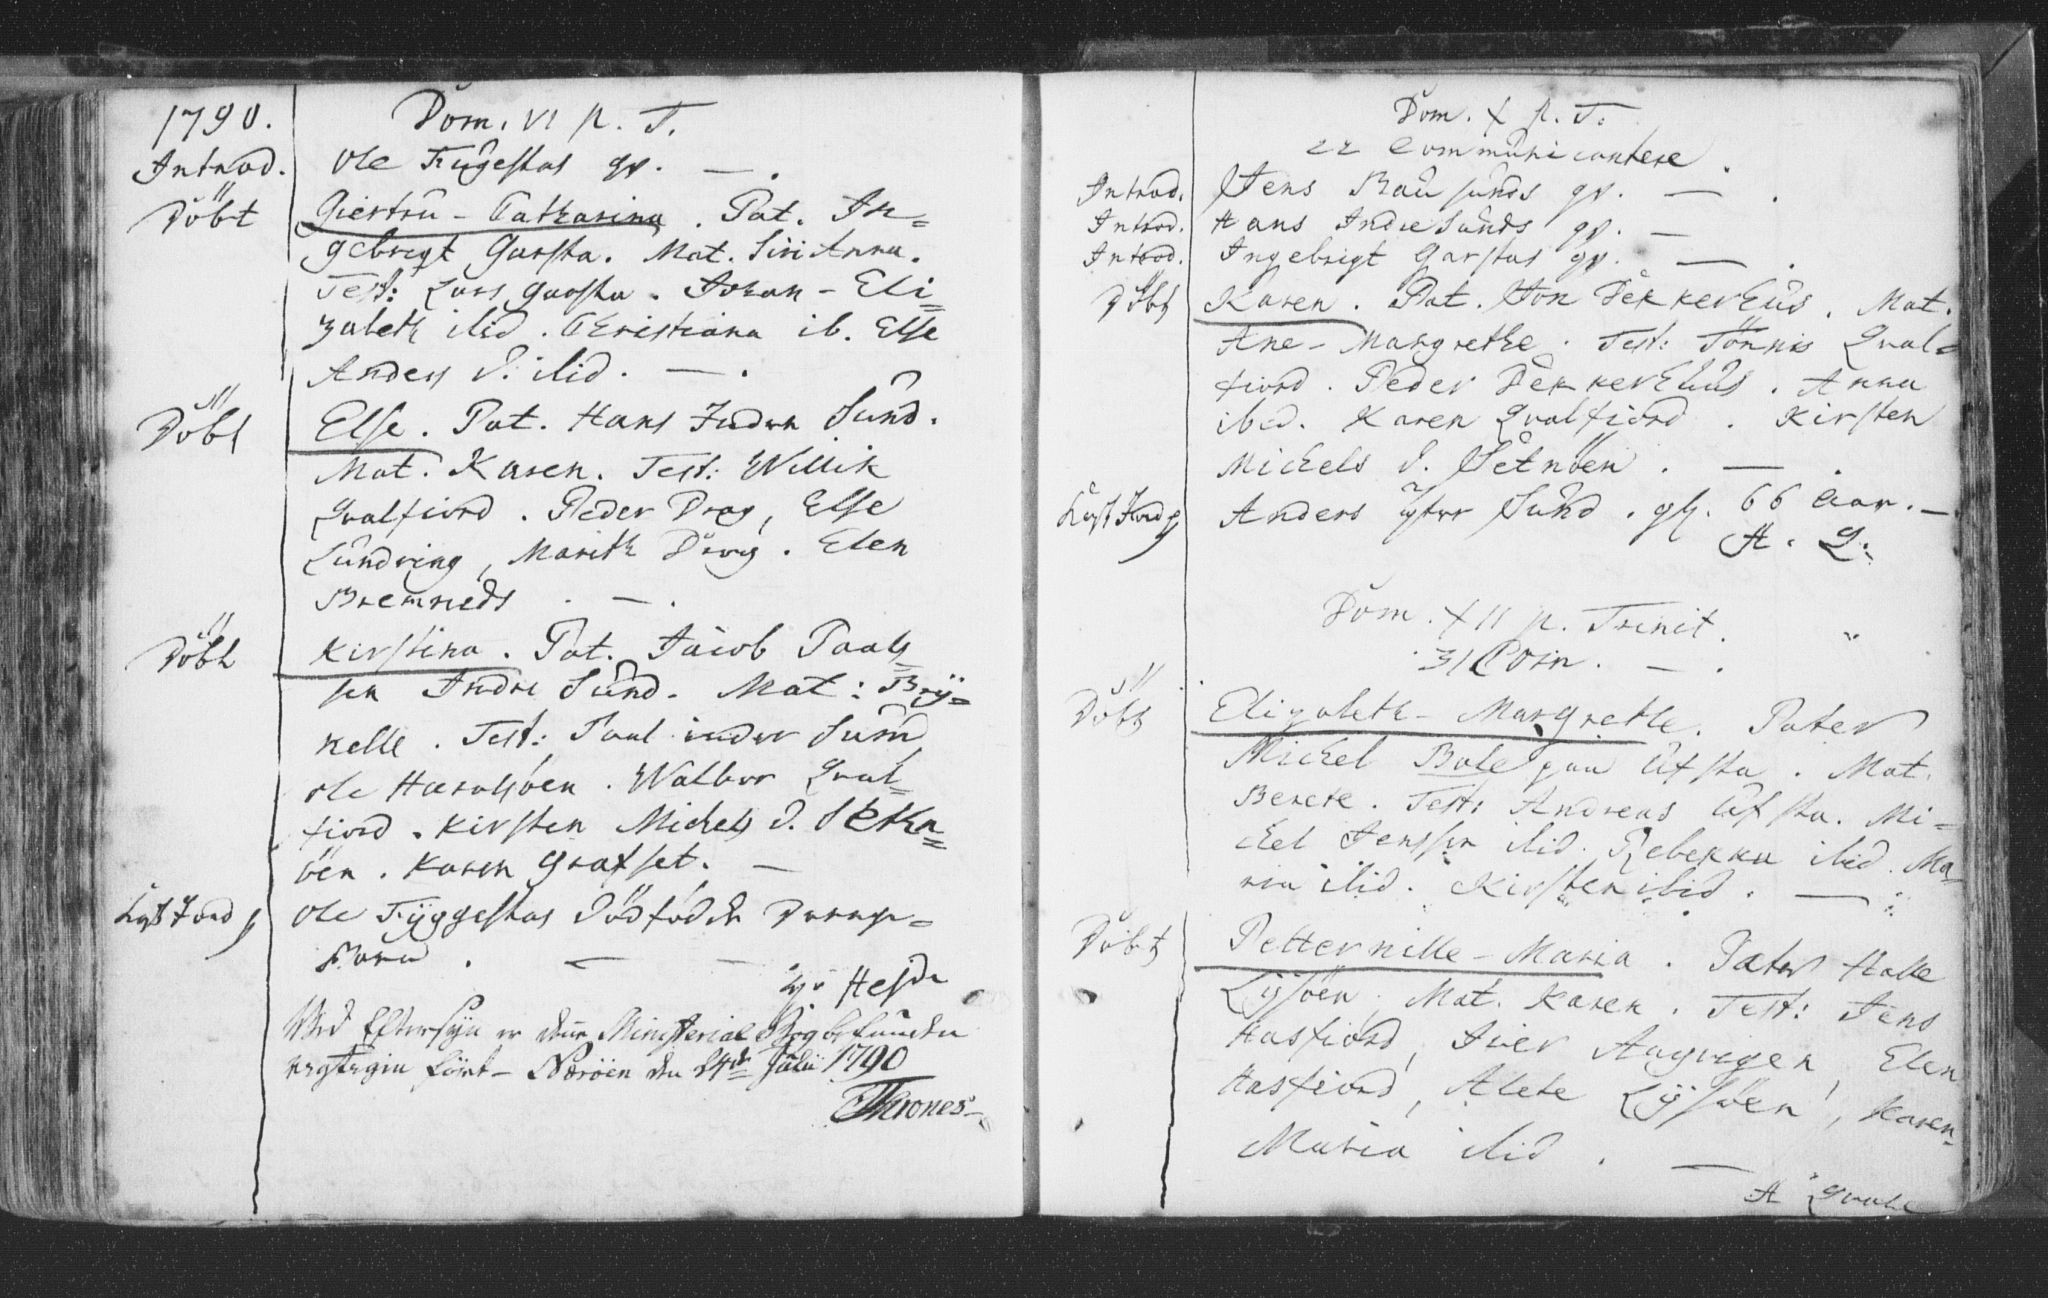 1790. Dom. VI p. T.
Introd. Ole Fugestas qv. —.
Döbt Giertru-Catharina. Pat. In=
gebrigt Garsta. Mat. Siri Anna.
Test: Lars Garsta. Johan-Eli=
zabeth ibid. Christiana ib. Else
Anders D. ibid. —.
Döbt Else. Pat. Hans Inder Sund.
Mat. Karen. Test: Willik
Qvalfiord. Peder Drag, Else
Lundring, Marith Drag. Elen
Bremneds. —.
Döbt Kirstina. Pat. Jacob Paals=
sen Indre Sund. Mat: Brÿ=
kelle. Test: Paul inder Sund
Ole Haralsöen. Walbor Qval=
fiord. Kirsten Michels D. Setn=
öen. Karen Grafset. —
Kast Jord p Ole Fÿggestas dödfödde Drenge=
Barn. — —
Hejde
Ved Eftersyn er denne Ministerial Bog befunden
rigtigen ført — Nærøen den 24de Julii 1790
Thrones
Dom. X p. T.
22 Communicantere.
Introd. Jens Rausunds qv. —.
Introd. Hans Indre Sunds qv. —
Introd. Ingebrigt Garstas qv. —.
Döbt Karen. Pat. Jon Dekkerhus. Mat.
Ane-Margrethe. Test: Tönnis Qval=
fiord. Peder Dekkerhuus. Anna
ibid. Karen Qvalfiord. Kirsten
Michels D. Setnöen. —.
Kast Jord p Anders ÿter Sund. gl. 66 Aar. —
A. Q.
Dom. XII p. Trinit.
31 Com. —.
Döbt Elizabeth-Margrethe. Pater
Michel Bole paa Ufsta. Mat.
Berete. Test: Andreas Ufsta. Mi=
chel Jenssen ibid. Rebekka ibid. Ma=
ria ibid. Kirsten ibid. —
Döbt Petternille-Maria. Pater Halle
Lÿsöen. Mat. Karen. Test: Jens
Hasfiord, Iver Aagvegen, Elen
Hasfiord, Alete Lÿsöen, Karen-
Maria ibid. —
A Qvale